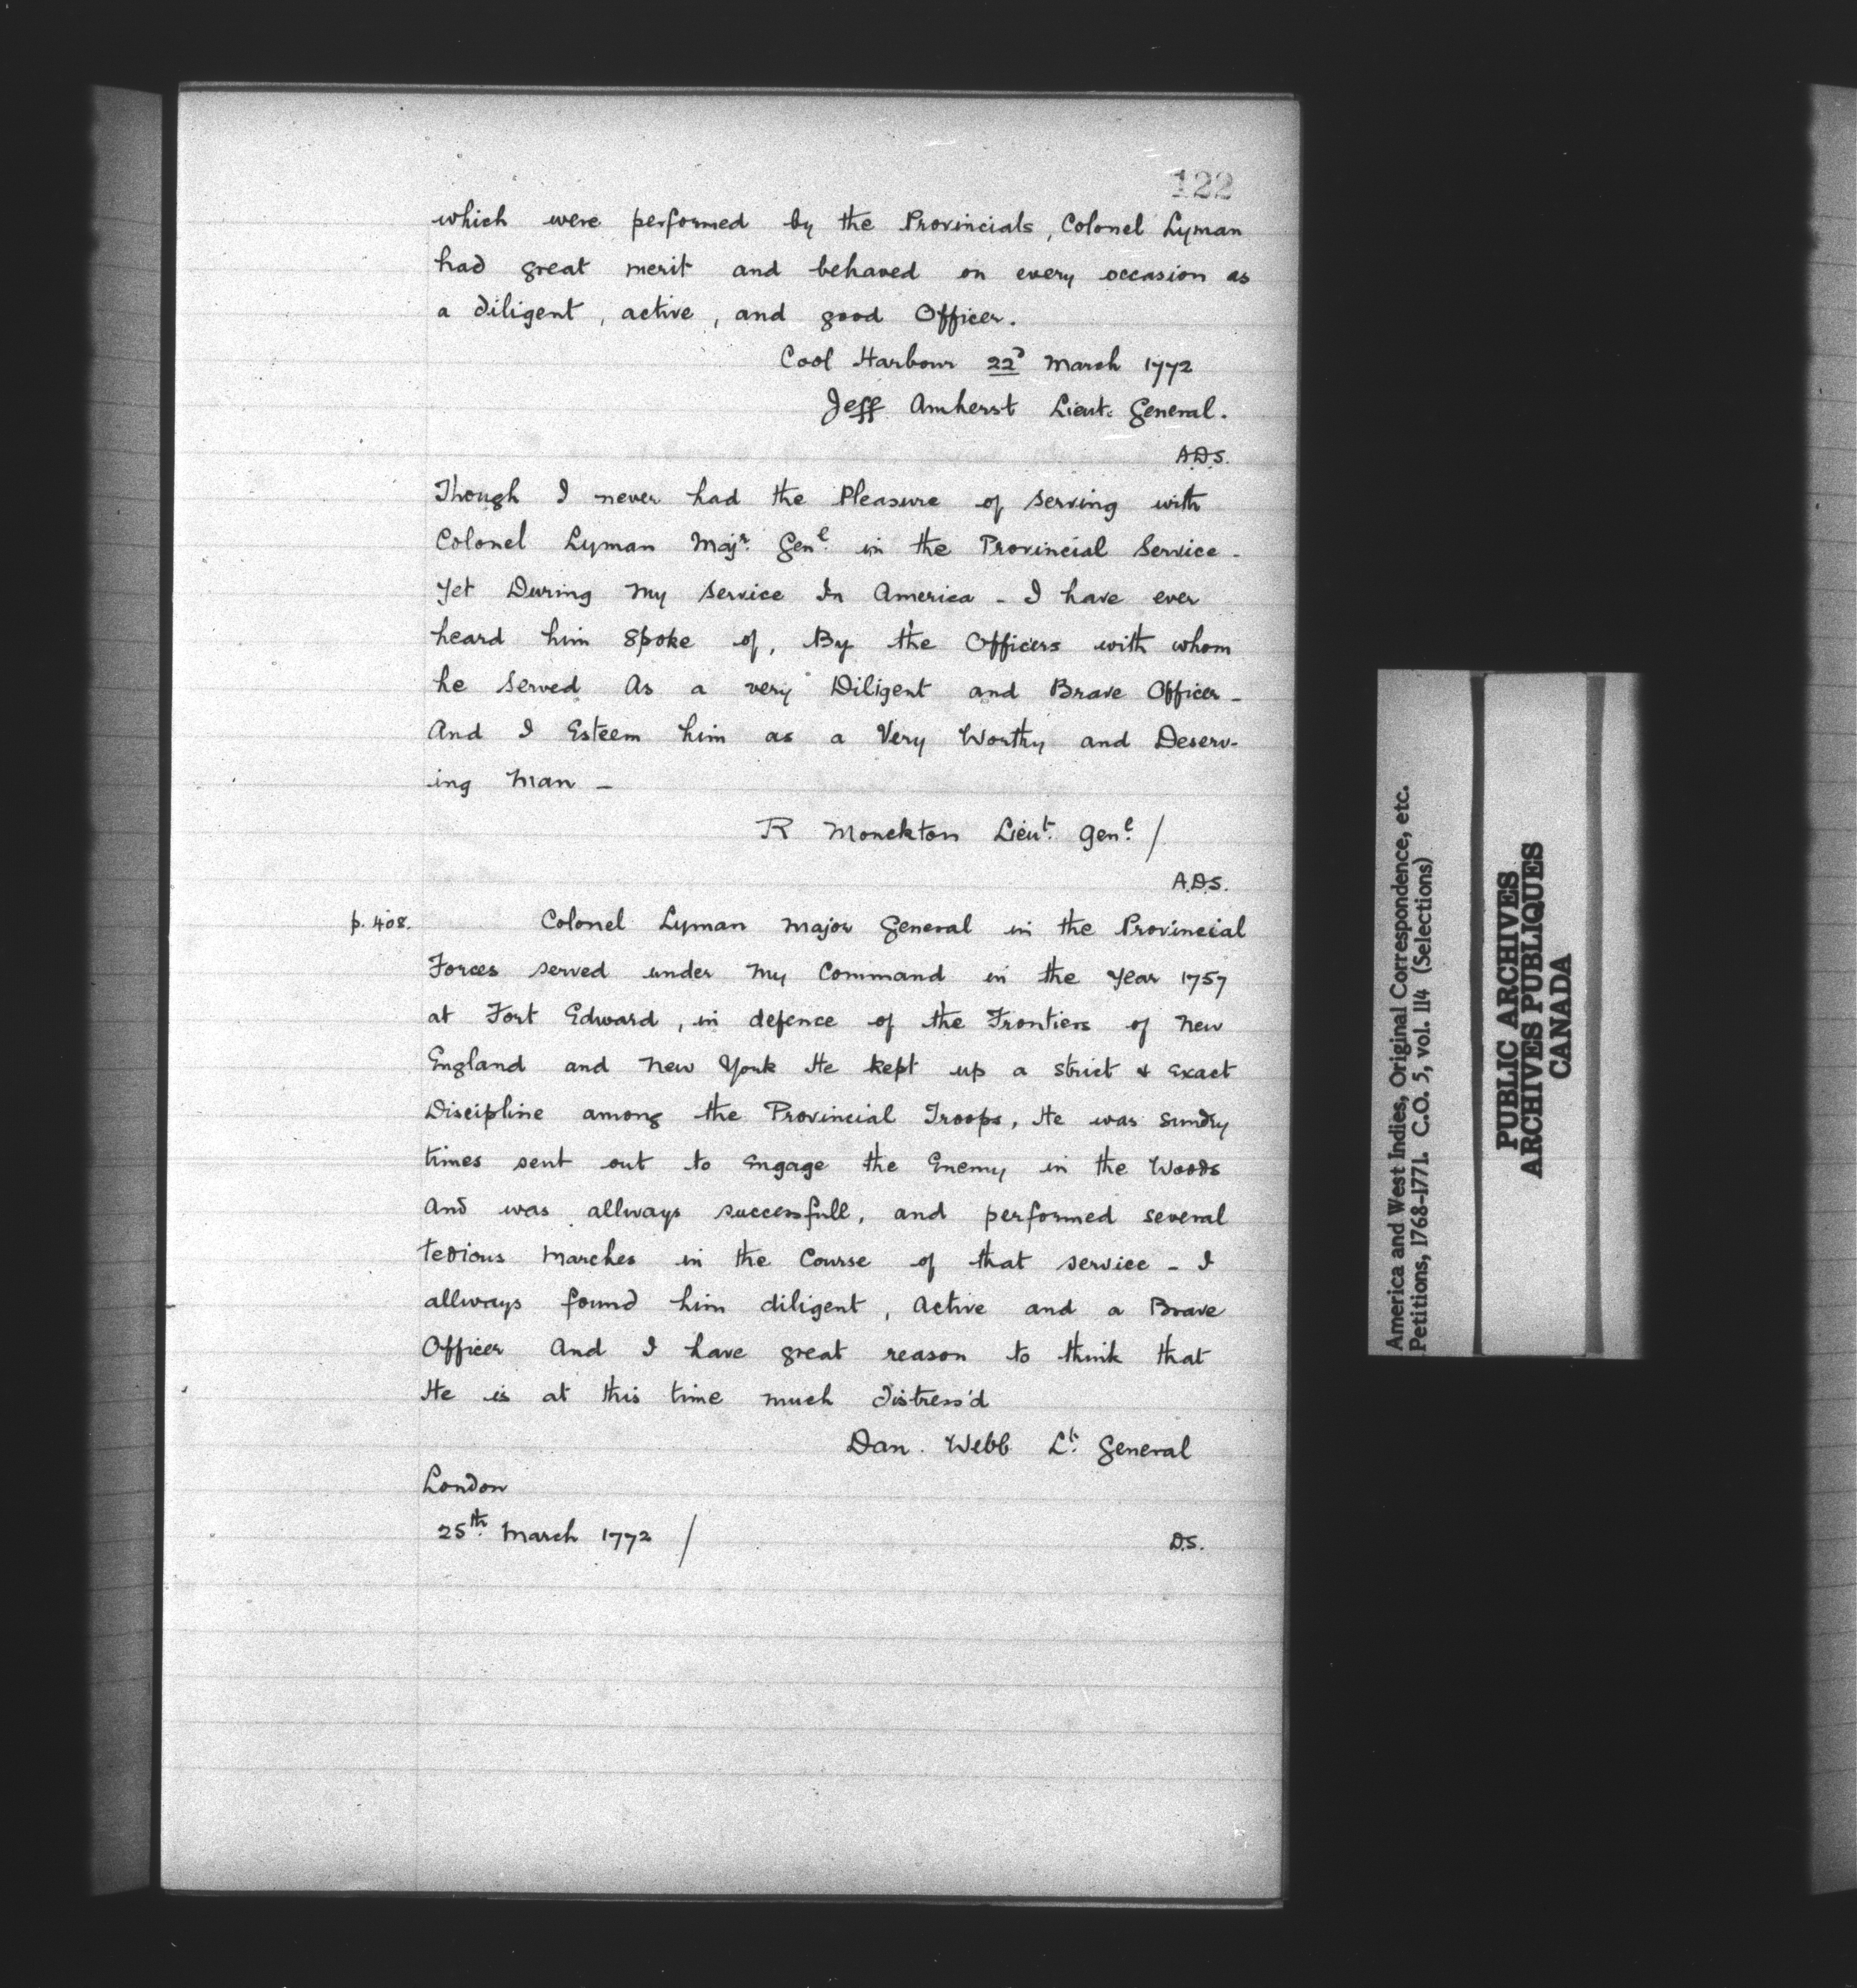 122
which were performed by the Provincials, Colonel Lyman
had great merit and behaved on every occasion as
a diligent, active, and good Officer.
Cool Harbour 22d March 1772
Jeff Amherst Lieut. General.
A.D.S.
Though I never had the Pleasure of serving with
Colonel Lyman Majr. Genl. in the Provincial Service -
Yet During My Service In America - I have ever
heard him Spoke of, By the Officers with whom
he Served As a very Diligent and Brave Officer -
And I Esteem him as a Very Worthy and Deserv-
ing Man -
R Monckton Lieut. Genl. /
A.D.S.
p. 408. Colonel Lyman Major General in the Provincial
Forces served under My Command in the Year 1757
at Fort Edward, in defence of the Frontiers of New
England and New York He kept up a strict & Exact
Discipline among the Provincial Troops, He was Sundry
times sent out to Engage the Enemy in the Woods
And was allways successfull, and performed several
tedious Marches in the Course of that service - I
allways found him diligent, Active and a Brave
Officer And I have great reason to think that
He is at this time much distress'd
Dan. Webb Lt. General
London
25th. March 1772 /
D.S.
America and West Indies, Original Correspondence, etc.
Petitions, 1768-1771. C.O. 5, vol. 114 (Selections)
PUBLIC ARCHIVES
ARCHIVES PUBLIQUES
CANADA